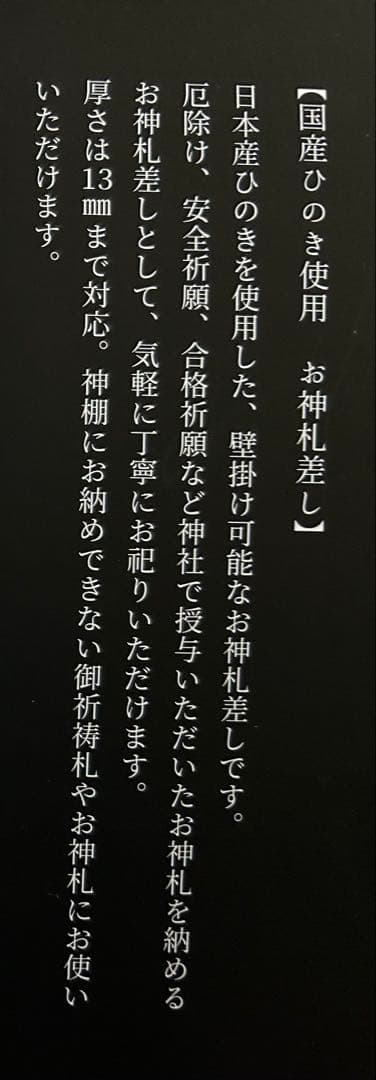 【国産ひのき使用　お神札差し】
日本産ひのきを使用した、壁掛け可能なお神札差しです。
厄除け、安全祈願、合格祈願など神社で授与いただいたお神札を納める
お神札差しとして、気軽に丁寧にお祀りいただけます。
厚さは13㎜まで対応。神棚にお納めできない御祈祷札やお神札にお使い
いただけます。